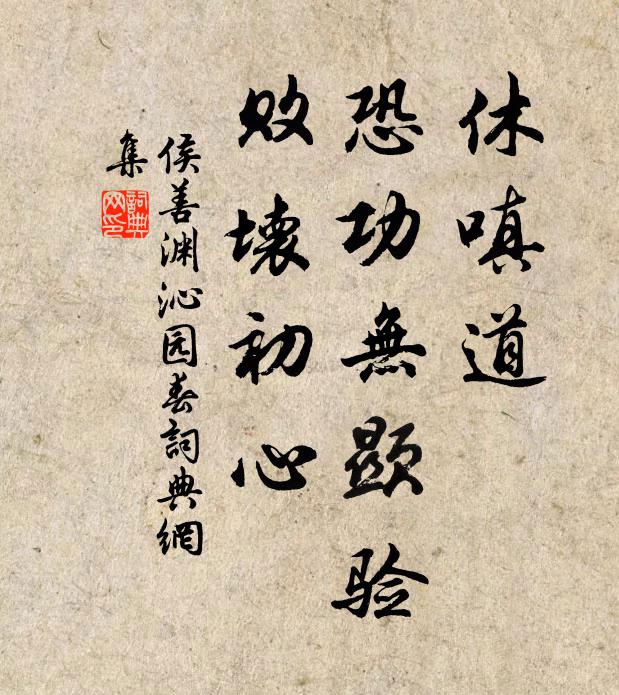 休嗔道
恐功無顯验
敗壞初心
侯善渊沁园春詞典網
集
詞典
网印